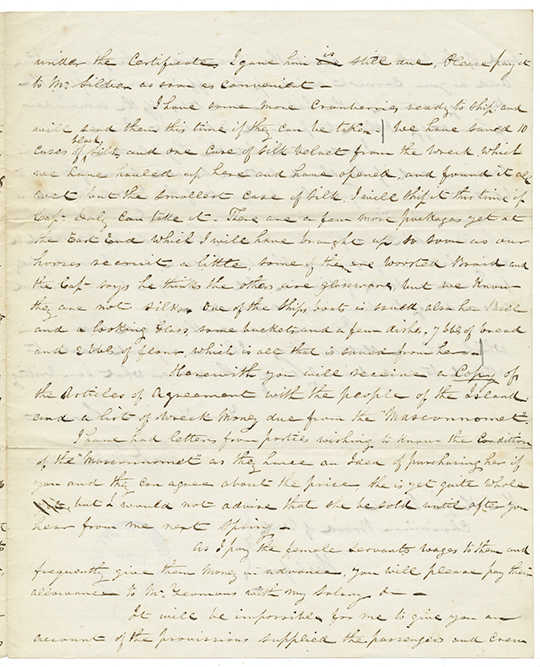 under the Certificate, I gave him is still due, Please pay it
to Mr. Silver as soon as convenient —
I have some more Cranberries ready to ship and
will send them this time if they can be taken — We have saved 10
cases of black Silk, and one case of Silk velvet from the wreck, which
we have hauled up here and have opened and found it all
wet but the smallest case of Silk, I will ship it this time if
Capt Daly can take it. There are a few more packages yet at
the East End which I will have brought up, so soon as our
horses recruit a little, some of them are Worsted Braid and
the Capt says he thinks the others are glassware, but we know
they are not silk, One of the Ships boats is saved also her Bell
and a looking Glass, some buckets and a few dishes, 7 bbl of bread
and 2 bbl of flour, which is all that is saved from her —
Herewith you will receive a Copy of
the Articles of Agreement with the people of the Island
and a list of wreck money due from the "Masconnomet".
I have had letters from parties wishing to know the Condition
of the "Masconnomet" as they have an Idea of purchasing her if
you and they can agree about the price, she is yet quite whole
but I would not advise that she be sold until after you
hear from me next Spring —
As I pay the female servants wages to them and
frequently give them money in advance, you will please pay their
allowance to Mr. Yeomans with my Salary &c —
It will be impossible for me to give you an
account of the provisions supplied the passengers and Crew